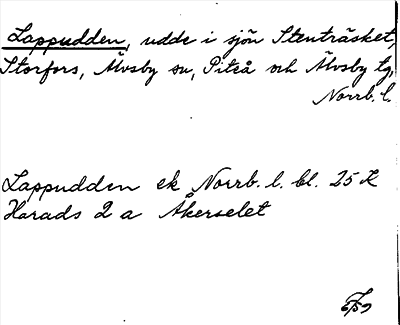 Lappudden, udde i sjön Stenträsket,
Storfors, Älvsby sn, Piteå och Älvsby tg,
Norrb. l.
Lappudden ek Norrb. l. bl. 25 K
Harads 2 a Åkerselet